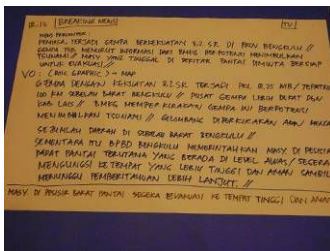 18.15 BREAKING NEWS TV
PEMIRSA, TERJADI GEMPA BERKEKUATAN 8,2 SR DI PROV. BENGKULU //
GEMPA TSB MENURUT INFORMASI DARI BMKG BERPOTENSI MENIMBULKAN
TSUNAMI // MASY YANG TINGGAL DI SEKITAR PANTAI DIMINTA BERSIAP
UNTUK EVAKUASI //
VO: (CAR. GRAPHIC) → MAP
GEMPA DENGAN KEKUATAN 8,2 SR TERJADI PKL 18.15 WIB / TEPATNYA
100 KM SEBELAH BARAT BENGKULU // PUSAT GEMPA LEBIH DEKAT DGN
KAB LAIS // BMKG MEMPERKIRAKAN GEMPA INI BERPOTENSI
MENIMBULKAN TSUNAMI // GELOMBANG DIPERKIRAKAN AKAN
SEJUMLAH DAERAH DI SEBELAH BARAT BENGKULU //
SEMENTARA ITU BPBD BENGKULU MEMERINTAHKAN MASY. DI PESISIR
BARAT PANTAI TERUTAMA YANG BERADA DI LEVEL AWAS / SEGERA
MENGUNGSI KE TEMPAT YANG LEBIH TINGGI DAN AMAN SAMBIL
MENUNGGU PEMBERITAHUAN LEBIH LANJUT. //
MASY DI PESISIR BARAT PANTAI SEGERA EVAKUASI KE TEMPAT TINGGI DAN AMAN